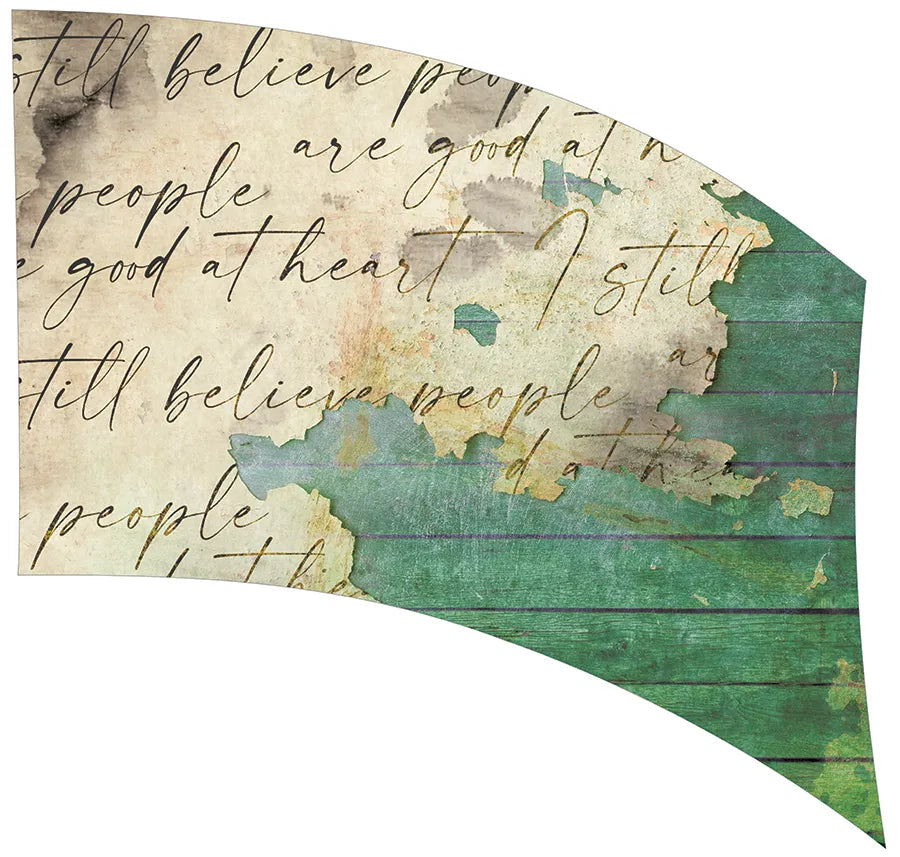 still believe peop
are good at h
people
e good at heart I still
ar
till believe people
d at hea
people
d at hea